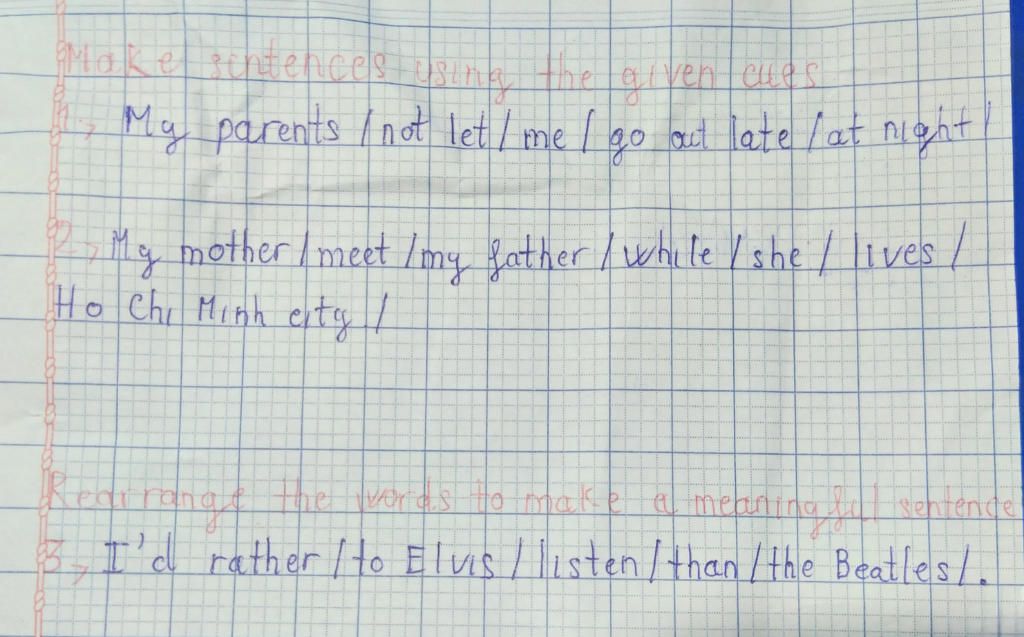 Make sentences using the given cues
1, My parents / not let / me / go out late / at night /
2, My mother / meet / my father / while / she / lives /
Ho Chi Minh city /
Rearrange the words to make a meaningful sentence
3, I'd rather / to Elvis / listen / than / the Beatles / .